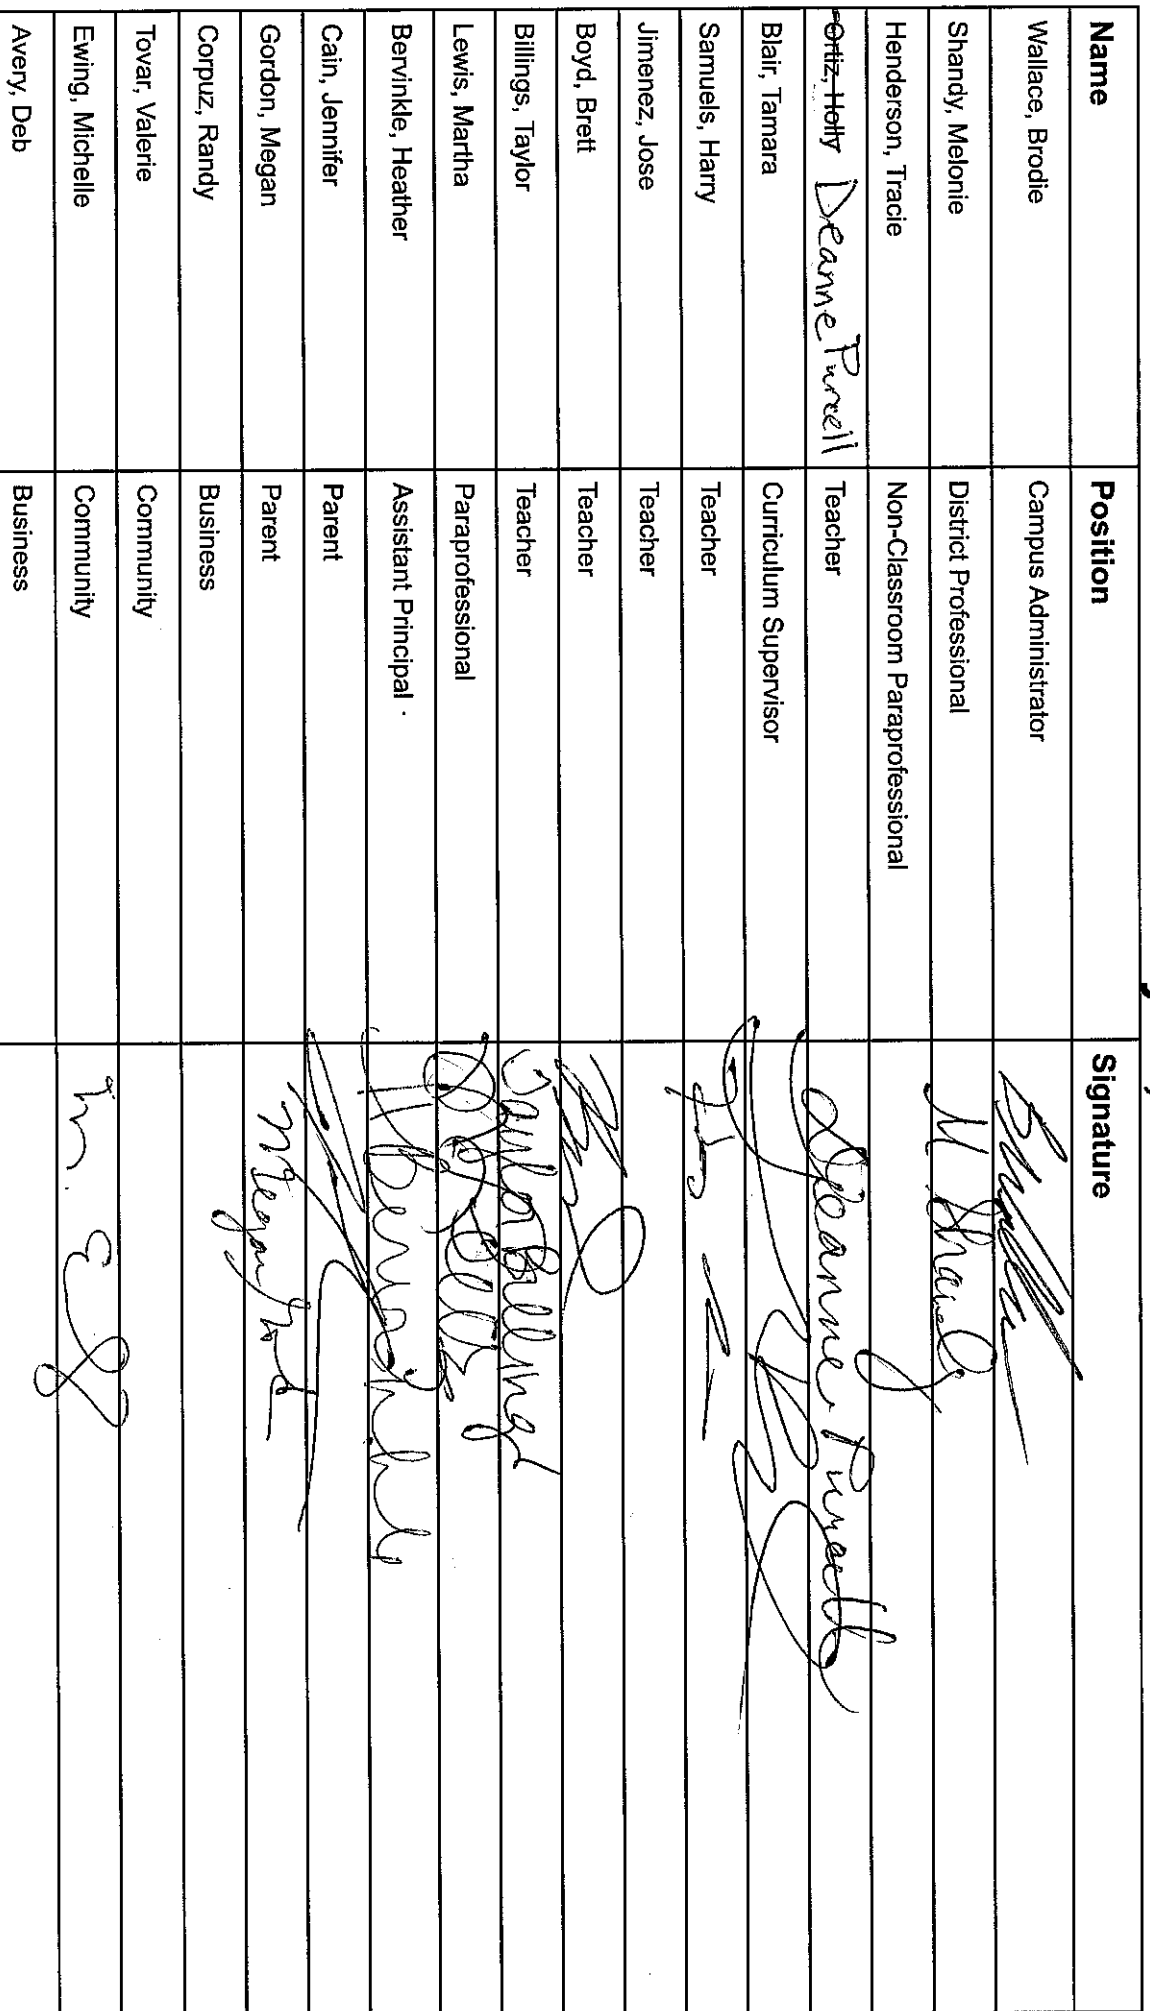 Name Position Signature
Wallace, Brodie Campus Administrator
Shandy, Melonie District Professional M Shandy
Henderson, Tracie Non-Classroom Paraprofessional
Ortiz, Holly Deanne Purcell Teacher Deanne Purcell
Blair, Tamara Curriculum Supervisor
Samuels, Harry Teacher
Jimenez, Jose Teacher
Boyd, Brett Teacher
Billings, Taylor Teacher Taylor Billings
Lewis, Martha Paraprofessional
Bervinkle, Heather Assistant Principal
Cain, Jennifer Parent
Gordon, Megan Parent Megan
Corpuz, Randy Business
Tovar, Valerie Community
Ewing, Michelle Community
Avery, Deb Business